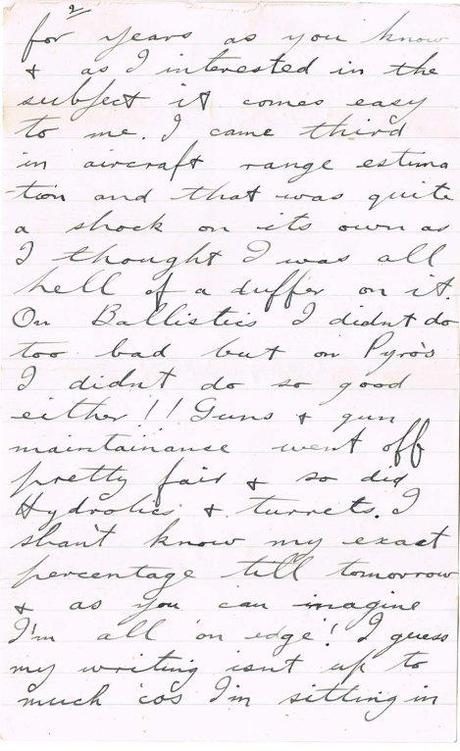 2
for years as you know
& as I interested in the
subject it comes easy
to me. I came third
in aircraft range estima
-tion and that was quite
a shock on its own as
I thought I was all
hell of a duffer on it.
On Ballistics I didnt do
too bad but on Pyro's
I didnt do so good
either!! Guns & gun
maintainanse went off
pretty fair & so did
Hydrolics & turrets. I
shan't know my exact
percentage till tomorrow
& as you can imagine
I'm all 'on edge'! I guess
my writing isnt up to
much 'cos I'm sitting in